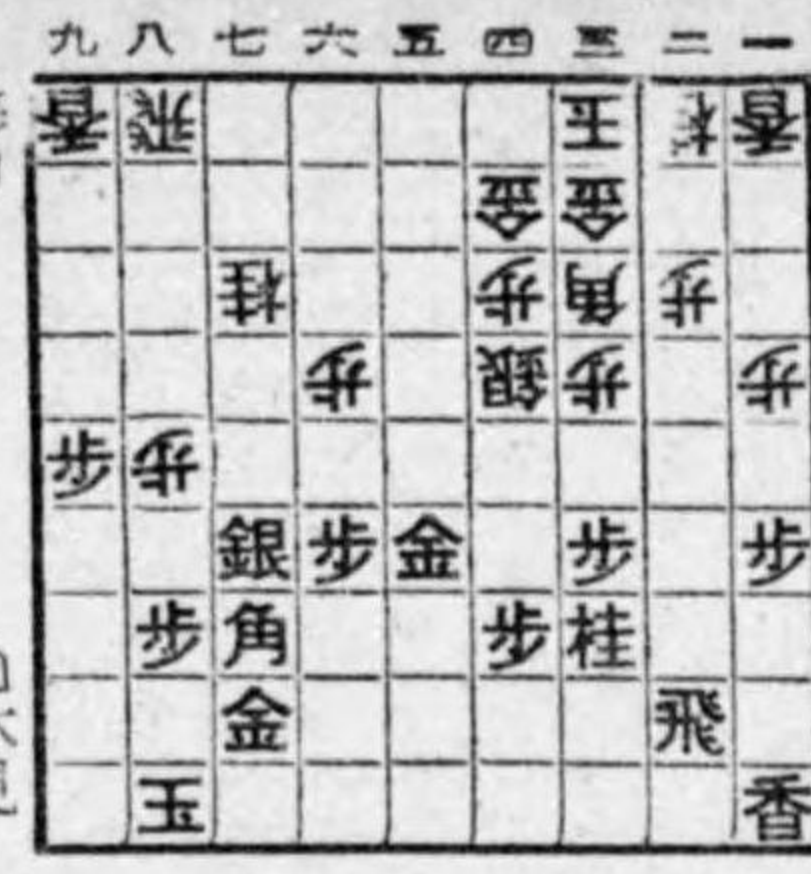 九八七六五四三二一
香飛玉桂香
金金
桂歩角歩
歩銀歩歩
歩歩
銀歩金歩歩
歩角歩桂
金飛
玉香